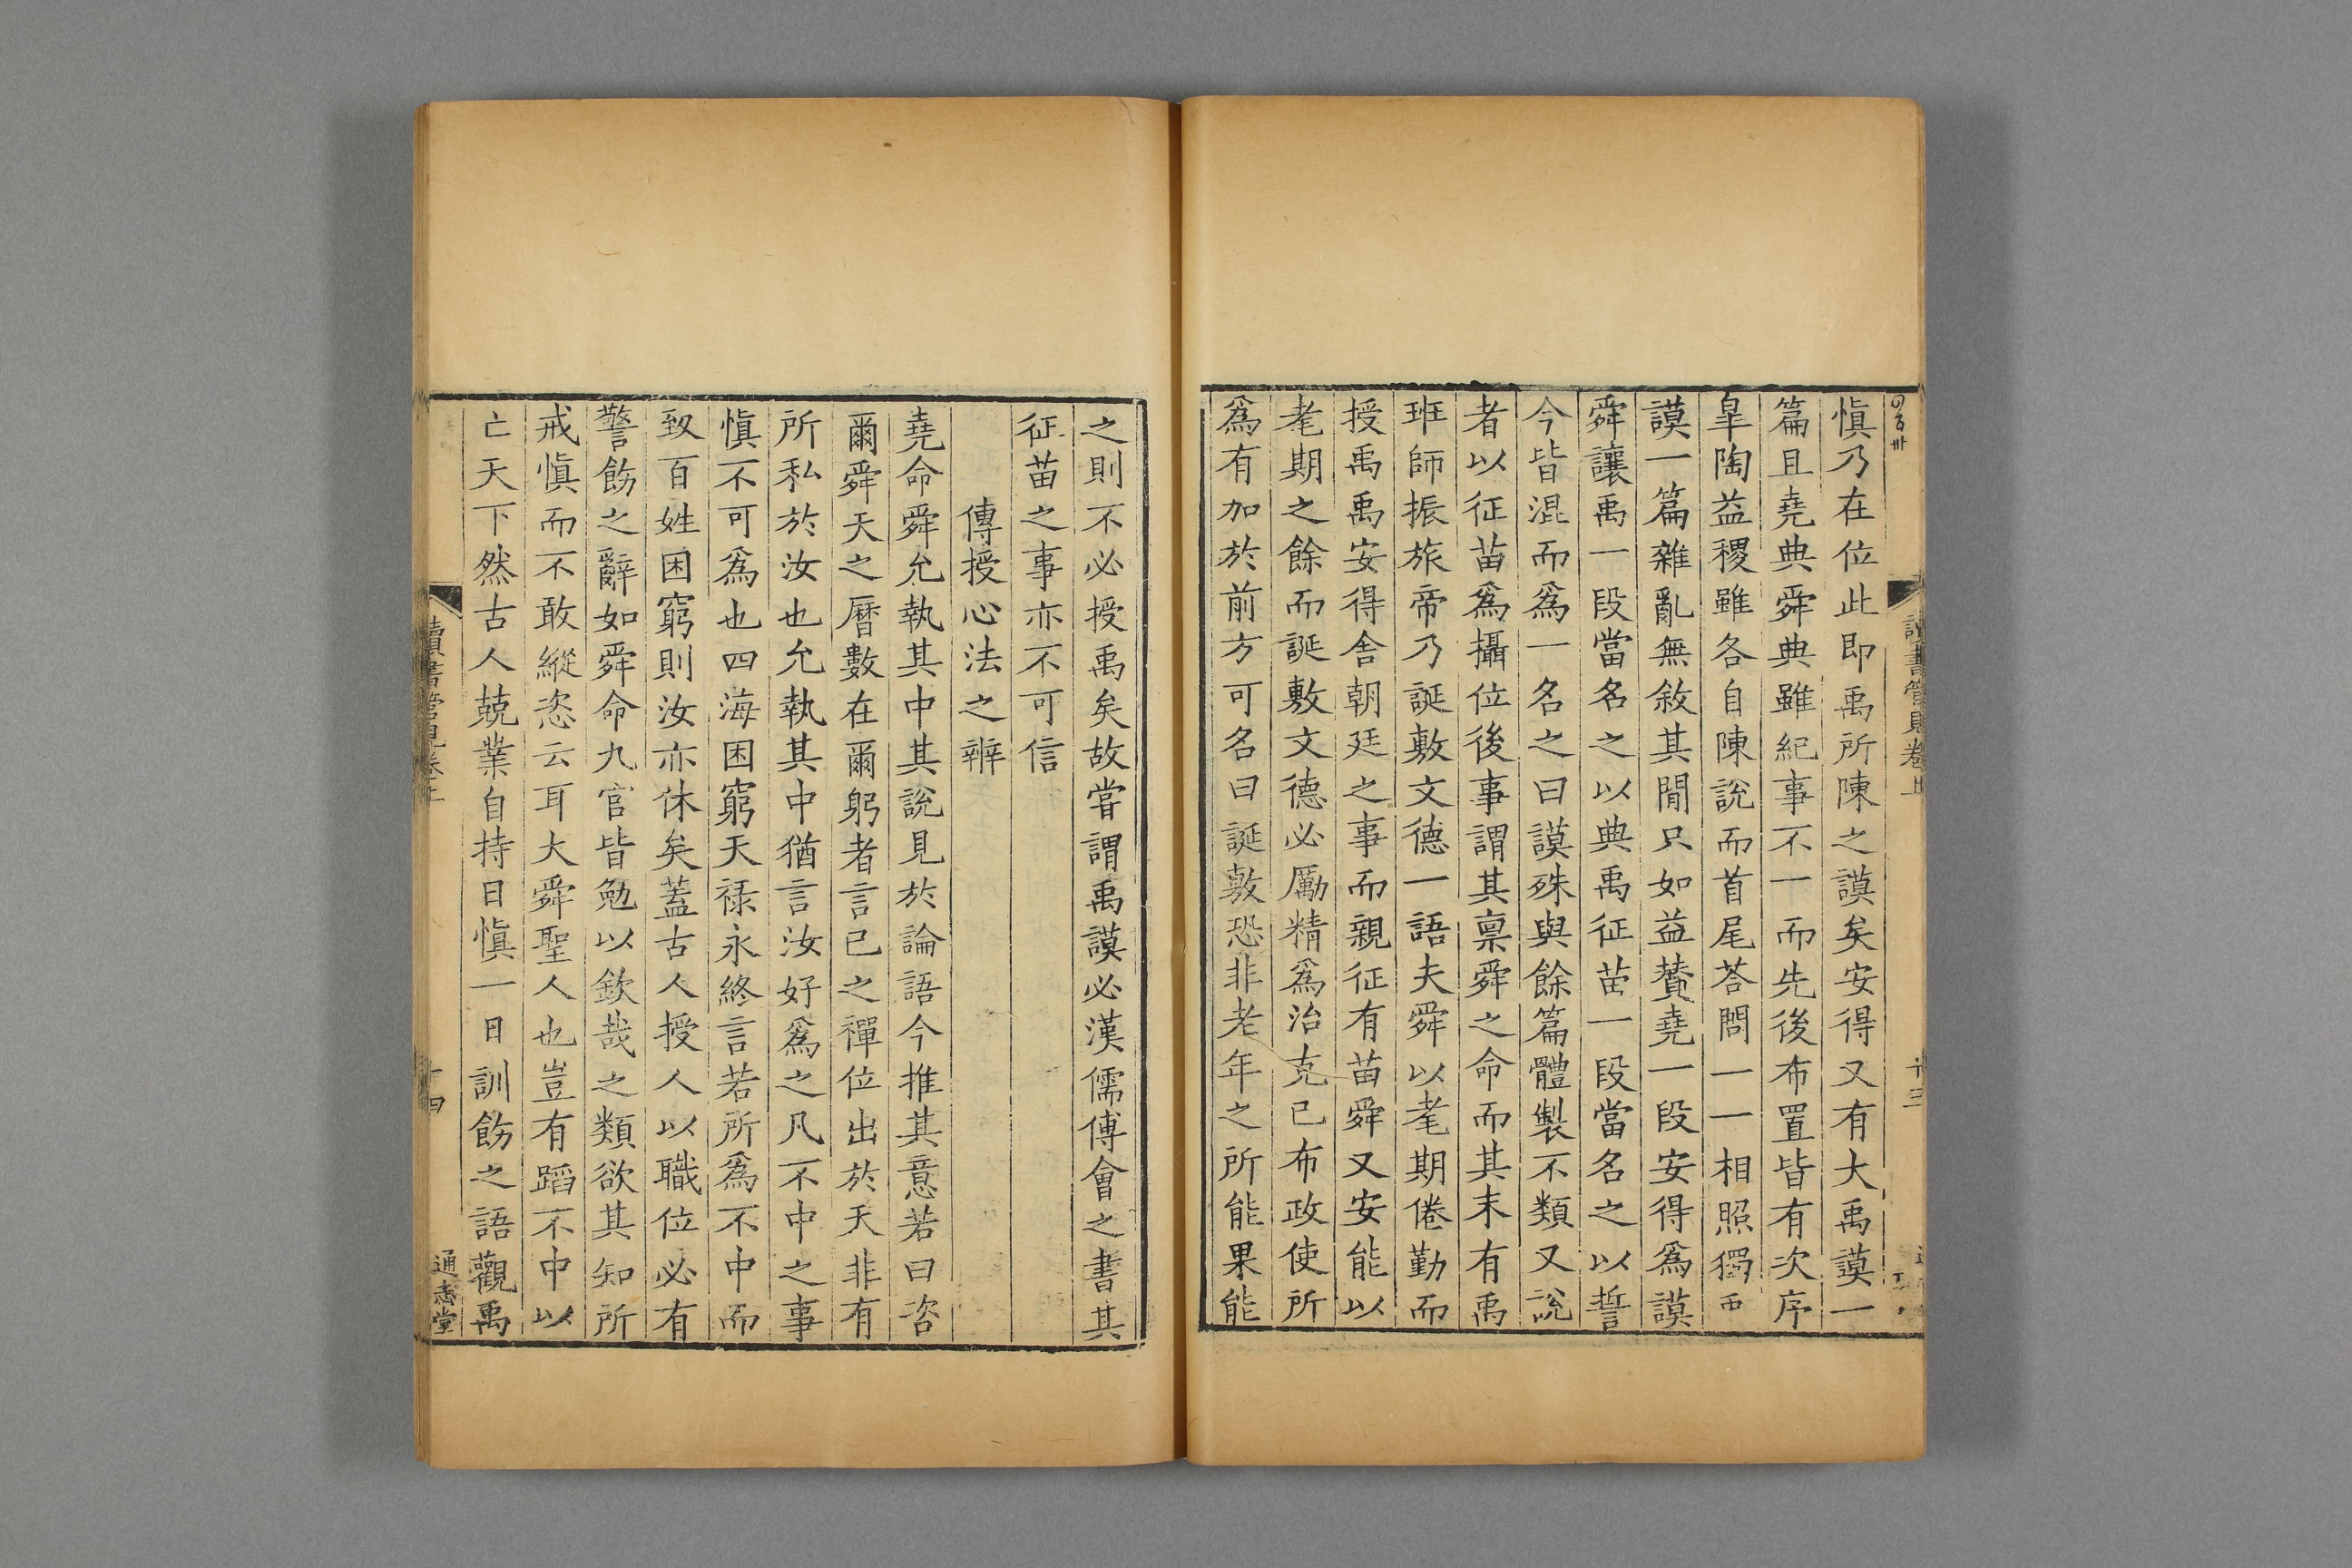 慎乃在位此即禹所陳之謨矣安得又有大禹謨一
篇且堯典舜典雖紀事不一而先後布置皆有次序
臯陶益稷雖各自陳說而首尾荅問一一相照獨
謨一篇雜亂無敘其閒只如益贊堯一段安得爲謨
舜讓禹一段當名之以典禹征苗一段當名之以誓
今皆混而爲一名之曰謨殊與餘篇體製不類又說
者以征苗爲攝位後事謂其禀舜之命而其末有禹
班師振旅帝乃誕敷文德一語夫舜以耄期倦勤而
授禹禹安得舍朝廷之事而親征有苗舜又安能以
耄期之餘而誕敷文德必厲精爲治克己布政使所
爲有加於前方可名曰誕敷恐非老年之所能果能
之則不必授禹矣故嘗謂禹謨必漢儒傅會之書其
征苗之事亦不可信
傳授心法之辨
堯命舜允執其中其說見於論語今推其意若曰咨
爾舜天之曆數在爾躬者言己之禪位出於天非有
所私於汝也允執其中猶言汝好爲之凡不中之事
慎不可爲也四海困窮天祿永終言若所爲不中而
致百姓困窮則汝亦休矣蓋古人授人以職位必有
警飭之辭如舜命九官皆勉以欽哉之類欲其知所
戒慎而不敢縱恣云耳大舜聖人也豈有蹈不中以
亡天下然古人兢業自持日慎一日訓飭之語觀禹
讀書管見卷上
十三
讀書管見卷上
十四
通志堂